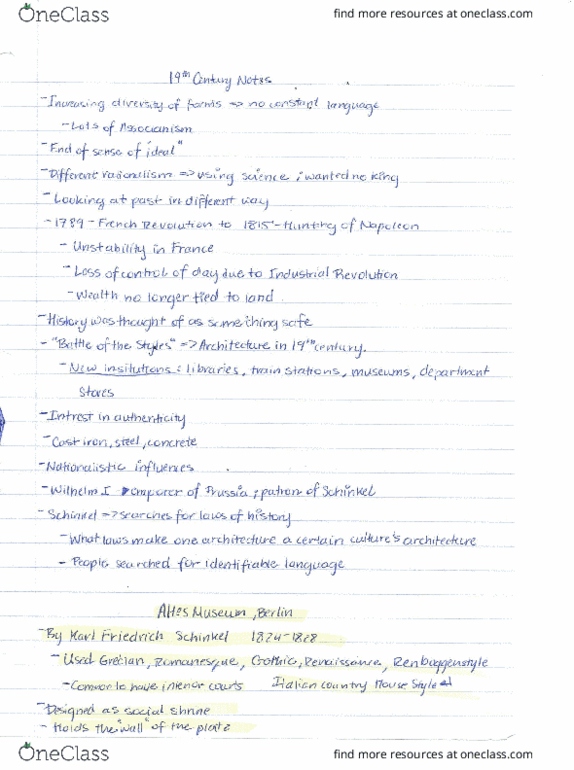 OneClass
find more resources at oneclass.com
19th Century Notes
-Increasing diversity of forms => no constant language
-Lots of Associanism
-End of sense of ideal"
-Different rationalism => using science ; wanted no king
-Looking at past in different way
-1789-French Revolution to 1815-Hunting of Napoleon
-Unstability in France
-Loss of control of day due to Industrial Revolution
-Wealth no longer tied to land
-History was thought of as something safe
-"Battle of the Styles" => Architecture in 19th century.
-New insitutions : libraries, train stations, museums, department
stores
-Intrest in authenticity
-Cast iron, steel, concrete
-Nationalistic influences
-Wilhelm I emperer of Prussia ; patron of Schinkel
-Schinkel => searches for laws of history
-What laws make one architecture a certain culture's architecture
-People searched for identifiable language
Altes Museum, Berlin
-By Karl Friedrich Schinkel 1824-1828
-Used Grecian, Romanesque, Gothic, Renaissance,
-Common to have interior courts Italian country House Style
-Designed as social shrine
-Holds the "wall" of the
OneClass
find more resources at oneclass.com